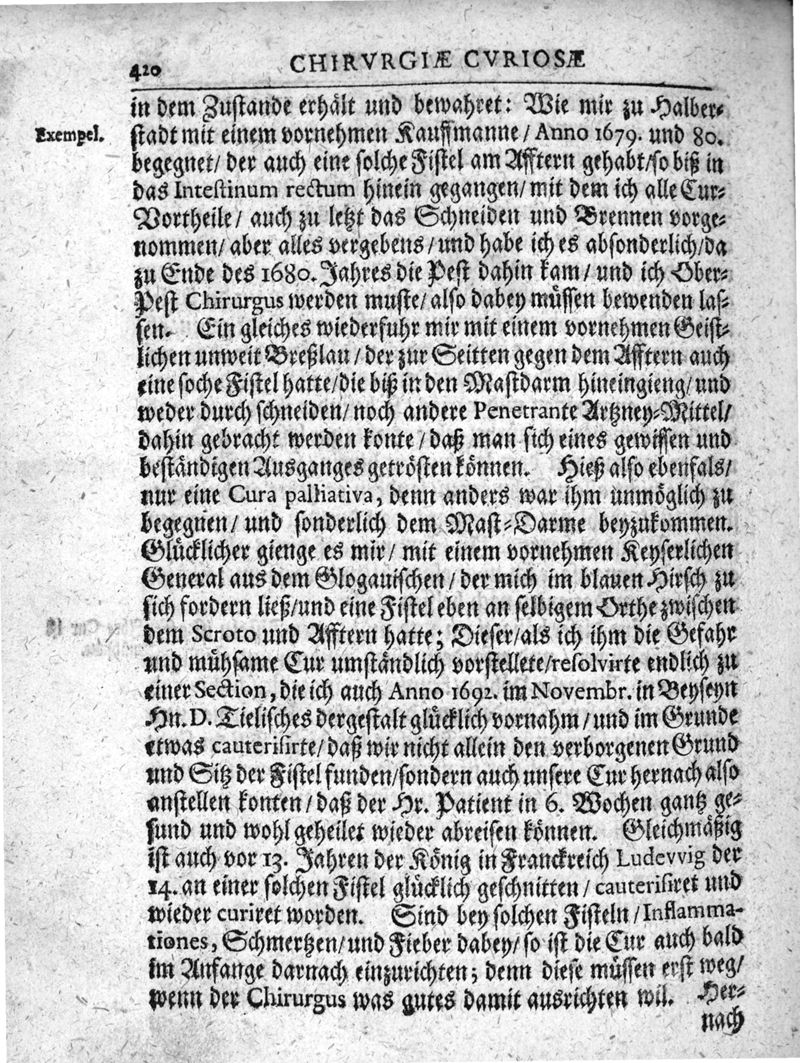 420 CHIRVRGIÆ CVRIOSÆ
in dem Zustande erhält und bewahret: Wie mir zu Halber-
Exempel. stadt mit einem vornehmen Kauffmanne/ Anno 1679. und 80.
begegnet/ der auch eine solche Fistel am Afftern gehabt/ so biß in
das Intestinum rectum hinein gegangen/ mit dem ich alle Cur-
Vortheile/ auch zu letzt das Schneiden und Brennen vorge-
nommen/ aber alles vergebens/ und habe ich es absonderlich/ da
zu Ende des 1680. Jahres die Pest dahin kam/ und ich Ober-
Pest Chirurgus werden muste/ also dabey müssen bewenden las-
sen. Ein gleiches wiederfuhr mir mit einem vornehmen Geist-
lichen unweit Breßlau/ der zur Seitten gegen dem Afftern auch
eine soche Fistel hatte/ die biß in den Mastdarm hineingieng/ und
weder durch schneiden/ noch andere Penetrante Artzney-Mittel/
dahin gebracht werden konte/ daß man sich eines gewissen und
beständigen Ausganges getrösten können. Hieß also ebenfals/
nur eine Cura palliativa, denn anders war ihm unmöglich zu
begegnen/ und sonderlich dem Mast-Darme beyzukommen.
Glücklicher gienge es mir/ mit einem vornehmen Keyserlichen
General aus dem Glogauischen/ der mich im blauen Hirsch zu
sich fordern ließ/ und eine Fistel eben an selbigem Orthe zwischen
dem Scroto und Afftern hatte; Dieser/ als ich ihm die Gefahr
und mühsame Cur umständlich vorstellete/ resolvirte endlich zu
einer Section, die ich auch Anno 1692. im Novembr. in Beyseyn
Hn. D. Tielisches dergestalt glücklich vornahm/ und im Grunde
etwas cauterisirte/ daß wir nicht allein den verborgenen Grund
und Sitz der Fistel funden/ sondern auch unsere Cur hernach also
anstellen konten/ daß der Hr. Patient in 6. Wochen gantz ge-
sund und wohl geheilet wieder abreisen können. Gleichmäßig
ist auch vor 13. Jahren der König in Franckreich Ludevvig der
14. an einer solchen Fistel glücklich geschnitten/ cauterisiret und
wieder curiret worden. Sind bey solchen Fisteln/ Inflamma-
tiones, Schmertzen/ und Fieber dabey/ so ist die Cur auch bald
im Anfange darnach einzurichten; denn diese müssen erst weg/
wenn der Chirurgus was gutes damit ausrichten wil. Her-
nach